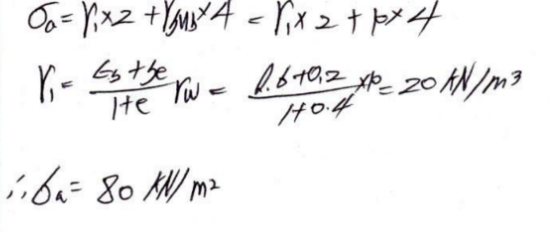 σa = γ₁×2 + γsub×4 = γ₁×2 + 10×4
γ₁ = Gs+Se / 1+e γw = 2.6+0.2 / 1+0.4 ×10 = 20 kN/m³
∴ σa = 80 kN/m²